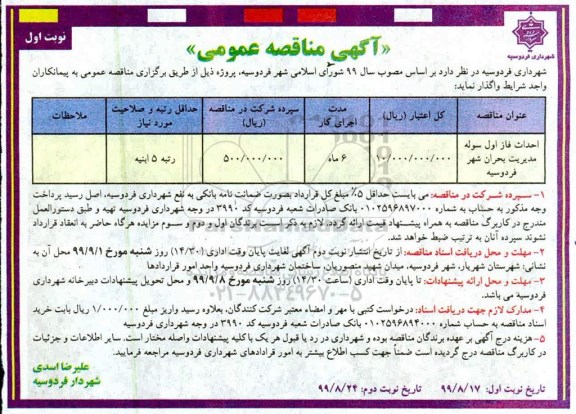 نوبت اول
شهرداری فردوسیه
«آگهی مناقصه عمومی»
شهرداری فردوسیه در نظر دارد بر اساس مصوب سال ۹۹ شورای اسلامی شهر فردوسیه، پروژه ذیل از طریق برگزاری مناقصه عمومی به پیمانکاران
واجد شرایط واگذار نماید:
عنوان مناقصه | کل اعتبار (ریال) | مدت اجرای کار | سپرده شرکت در مناقصه (ریال) | حداقل رتبه و صلاحیت مورد نیاز | ملاحظات
احداث فاز اول سوله مدیریت بحران شهر فردوسیه | ۱۰/۰۰۰/۰۰۰/۰۰۰ | ۶ ماه | ۵۰۰/۰۰۰/۰۰۰ | رتبه ۵ ابنیه
۱- سپرده شرکت در مناقصه: می بایست حداقل ۵٪ مبلغ کل قرارداد بصورت ضمانت نامه بانکی به نفع شهرداری فردوسیه، اصل رسید پرداخت
وجه مذکور به حساب به شماره ۰۱۰۲۵۹۶۸۹۷۰۰۰ بانک صادرات شعبه فردوسیه کد ۳۹۹۰ در وجه شهرداری فردوسیه تهیه و طبق دستورالعمل
مندرج در کاربرگ مناقصه به همراه پیشنهاد قیمت ارائه گردد. لازم به ذکر است برندگان اول و دوم و سوم مزایده هرگاه حاضر به انعقاد قرارداد
نشوند سپرده آنان به ترتیب ضبط خواهد شد.
۲- مهلت و محل دریافت اسناد مناقصه: از تاریخ انتشار نوبت دوم آگهی لغایت پایان وقت اداری (۱۴/۳۰) روز شنبه مورخ ۹۹/۹/۱ محل آن به
نشانی: شهرستان شهریار، شهر فردوسیه، میدان شهید منصوریان، ساختمان شهرداری فردوسیه واحد امور قراردادها
۳- مهلت و محل ارائه پیشنهادات: تا پایان وقت اداری (ساعت ۱۴/۳۰) روز شنبه مورخ ۹۹/۹/۸ و محل تحویل پیشنهادات دبیرخانه شهرداری
فردوسیه می باشد.
۴- مدارک لازم جهت دریافت اسناد: درخواست کتبی با مهر و امضاء معتبر شرکت کنندگان، بعلاوه رسید واریز مبلغ ۱/۰۰۰/۰۰۰ ریال بابت خرید
اسناد مناقصه به حساب شماره ۰۱۰۲۵۹۶۸۹۴۰۰۰ بانک صادرات شعبه فردوسیه کد ۳۹۹۰ در وجه شهرداری فردوسیه
۵- هزینه درج آگهی بر عهده برندگان مناقصه بوده و شهرداری در رد یا قبول هر یک یا کلیه پیشنهادات واصله مختار است. سایر اطلاعات و جزئیات
در کاربرگ مناقصه درج گردیده است ضمناً جهت کسب اطلاع بیشتر به امور قراردادهای شهرداری فردوسیه مراجعه فرمایید.
علیرضا اسدی
شهردار فردوسیه
تاریخ نوبت اول: ۹۹/۸/۱۷ تاریخ نوبت دوم: ۹۹/۸/۲۴
۰۲۱-۸۸۳۴۹۶۷۰-۵